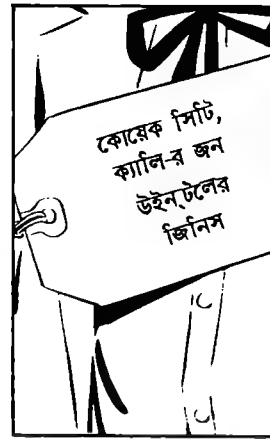 কোয়েক সিটি,
ক্যালি-র জন
উইন্‌টলের
জিনিস